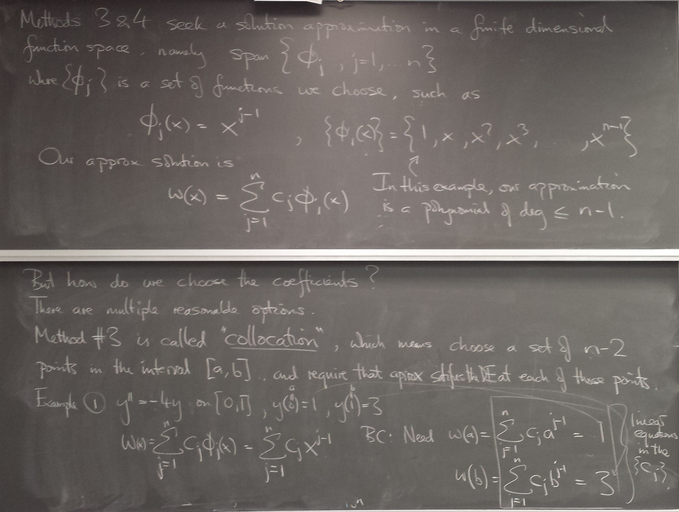 Methods 3 & 4 seek a solution approximation in a finite dimensional
function space, namely span { ϕ_j , j=1, ... n }
where {ϕ_j} is a set of functions we choose, such as
ϕ_j(x) = x^{j-1} , {ϕ_j(x)} = {1, x, x², x³, , x^{n-1}}
Our approx solution is
w(x) = ∑_{j=1}^{n} c_j ϕ_j(x)
In this example, our approximation
is a polynomial of deg ≤ n-1.
But how do we choose the coefficients?
There are multiple reasonable options.
Method #3 is called "collocation", which means choose a set of n-2
points in the interval [a,b], and require that approx satisfies the DE at each of those points.
Example ① y'' = -4y on [0,1], y(0)=1, y(1)=3
a b
w(x) = ∑_{j=1}^{n} c_j ϕ_j(x) = ∑_{j=1}^{n} c_j x^{j-1}
BC: Need w(a) = ∑_{j=1}^{n} c_j a^{j-1} = 1
w(b) = ∑_{j=1}^{n} c_j b^{j-1} = 3
linear
equations
in the
{c_j}